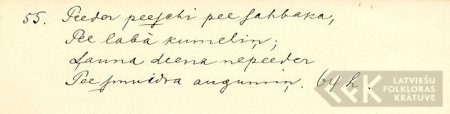 55. Peeder peeschi pee sahbaka,
Pee labà kumeliņ;
Launa deena nepeeder
Pee smuidra augumiņ. 64 k.
LATVIEŠU
FOLKLORAS
KRĀTUVE